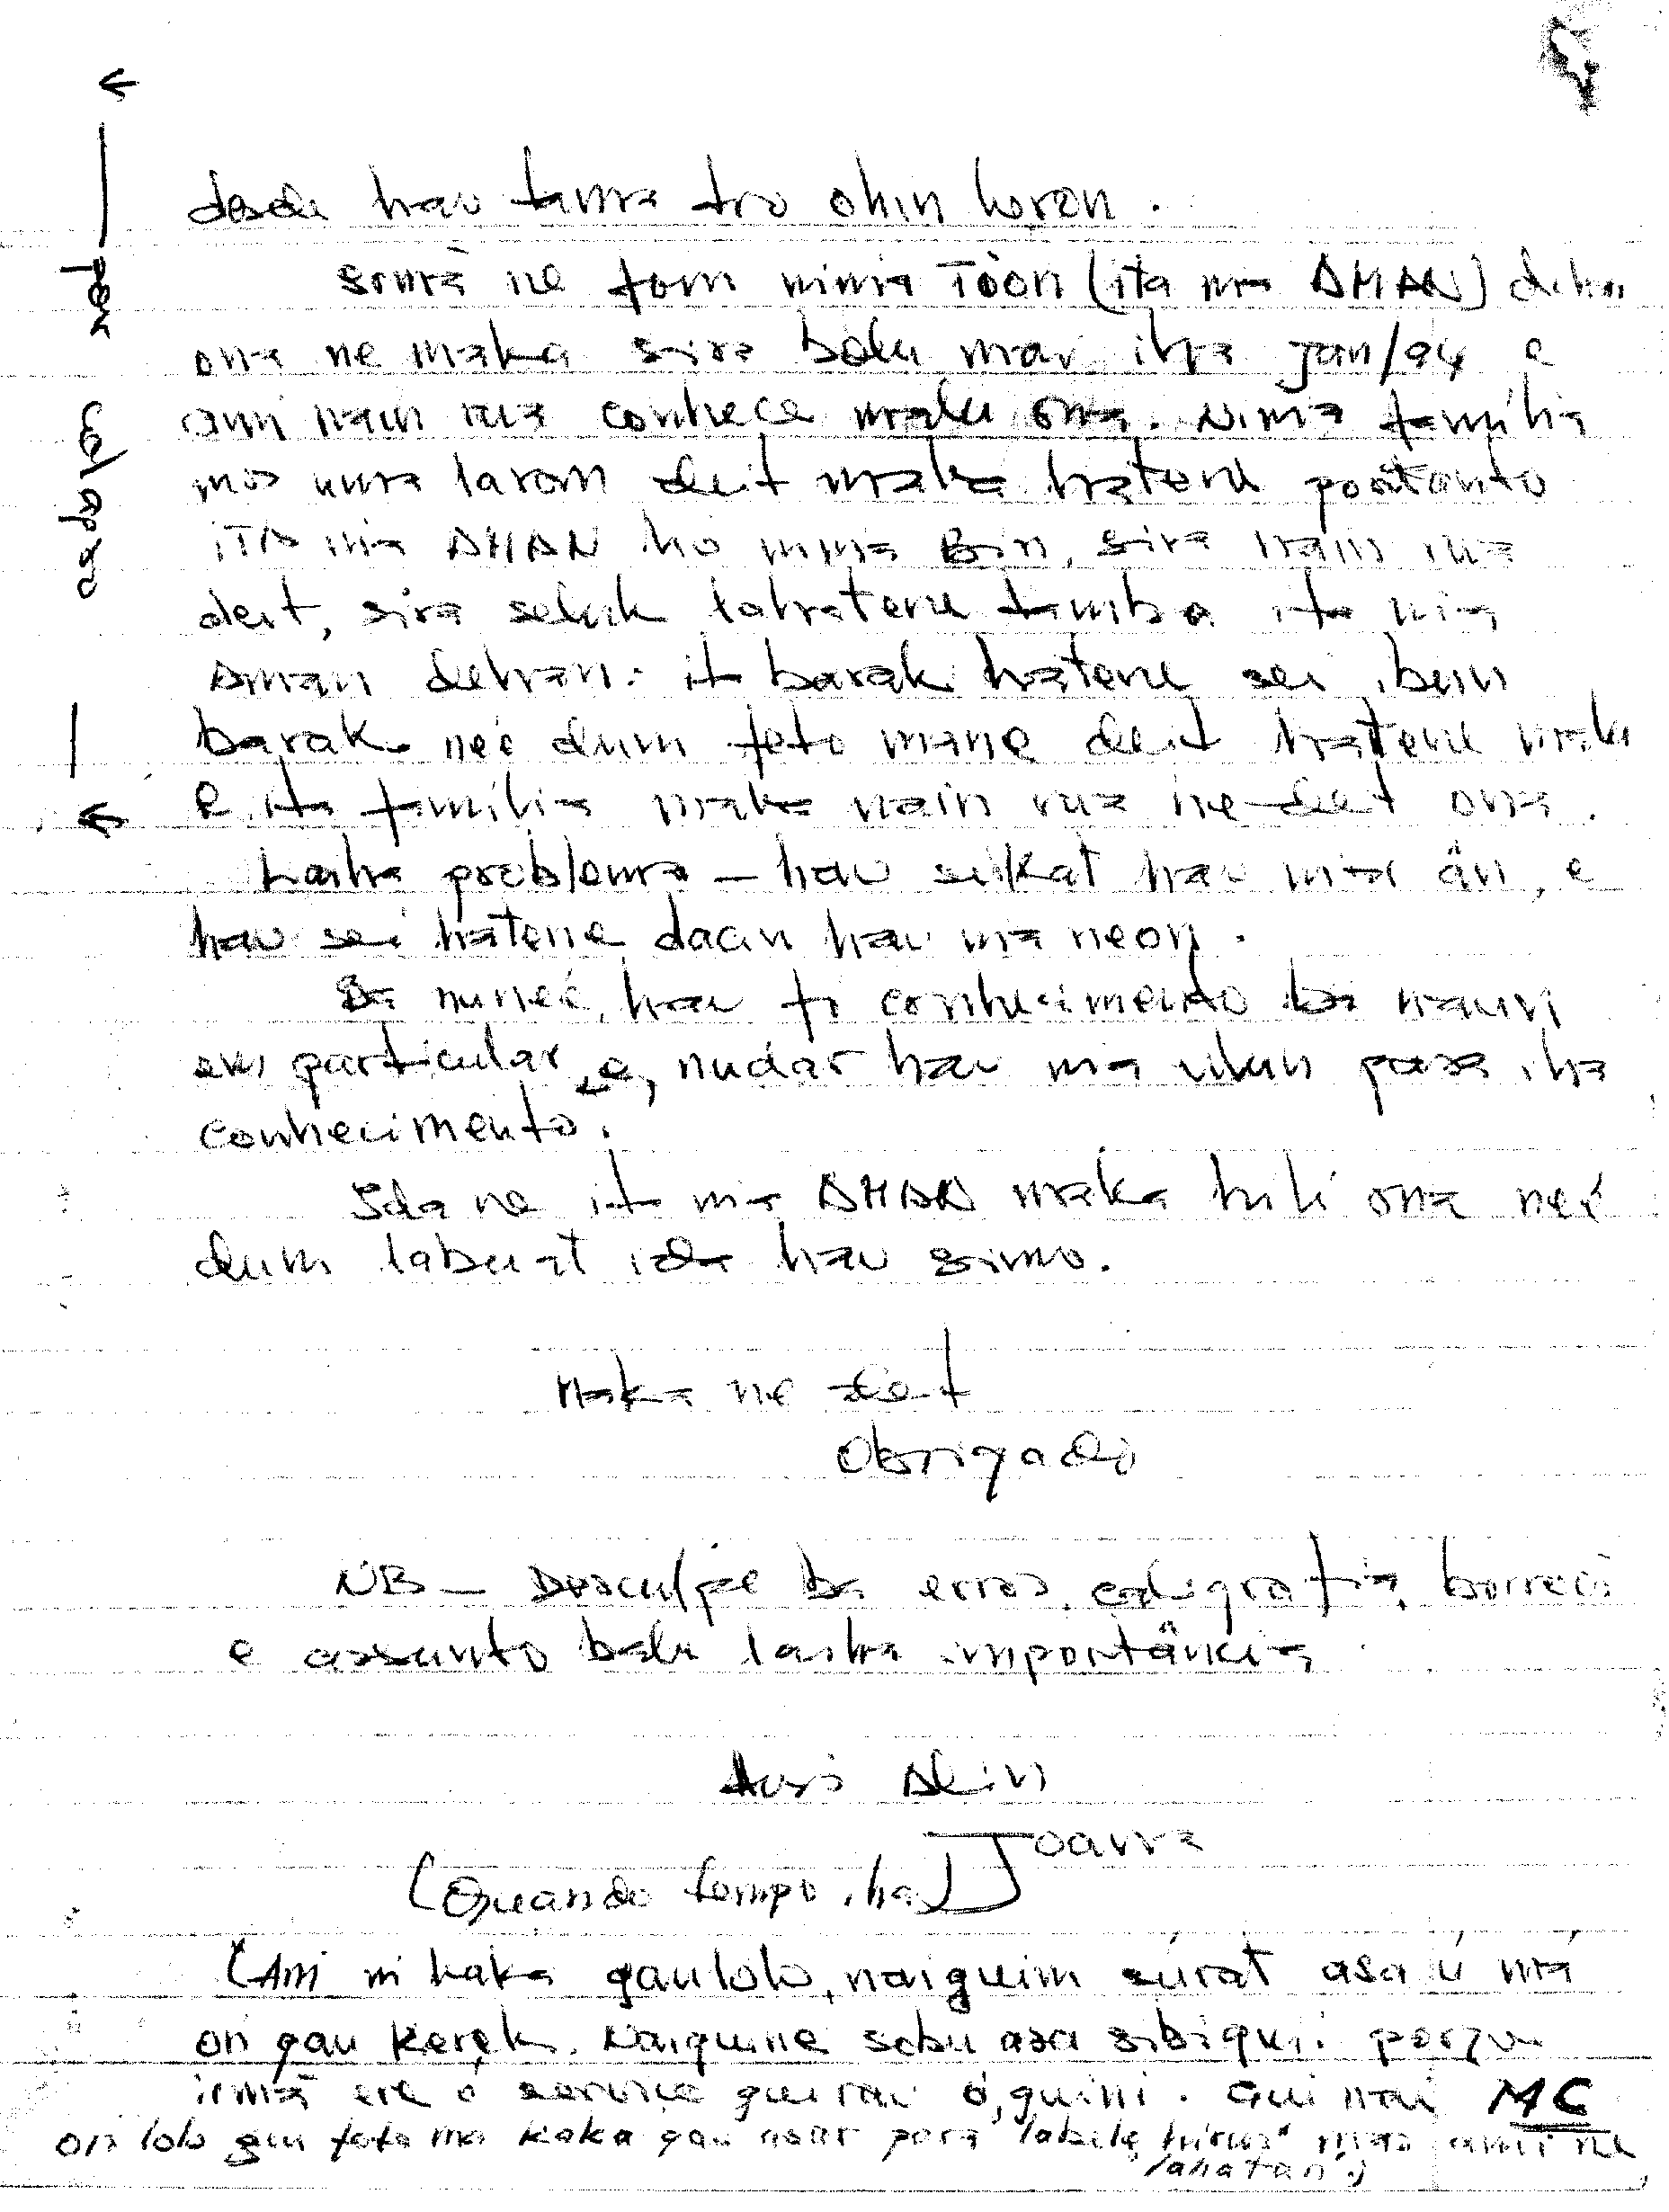 desde hau tama to'o ohin loron.
irmã ne fom nimia Tóon (ita nia AMAN) dehan
ona ne maka sira bolu mai iha Jan/94 e
ami nain rua conhece malu ona. Nimia familia
mos uma laron deit maka hatene portanto
ITA nia AMAN ho nimia Bin, sira nain rua
deit, sira seluk lahatene tamba ita nia
Aman dehan: it barak hatene sei ibun
barak neé dum feto mane deit hatene malu
e ita familia maka nain rua ne deit ona.
Laiha problema - hau seikat hau nia án, e
hau sei hatene daan hau nia neon.
Ba nuneé, hau fó conhecimento ba maun
em particular, e, nudar hau nia ulun para iha
conhecimento.
Ida ne it nia AMAN maka hili ona neé
dum labuat ida hau simo.
Maka ne deit
Obrigado
NB - Desculpe ba erros, caligrafia, borrecis
e assunto balu laiha importância
Husi Alin
Joana
(Quando tempo iha)
(Ami ni kaka gau lolo, naiguim surat asa ú má
on gau kerek. Naiguine sebu asa sibigui. porque
irmã ere o service gui rai ó, guini. Gui nai MC
ois lolo gui foto ma kaka gau asar para "labele hirus" mas ami ne
lahatan.)